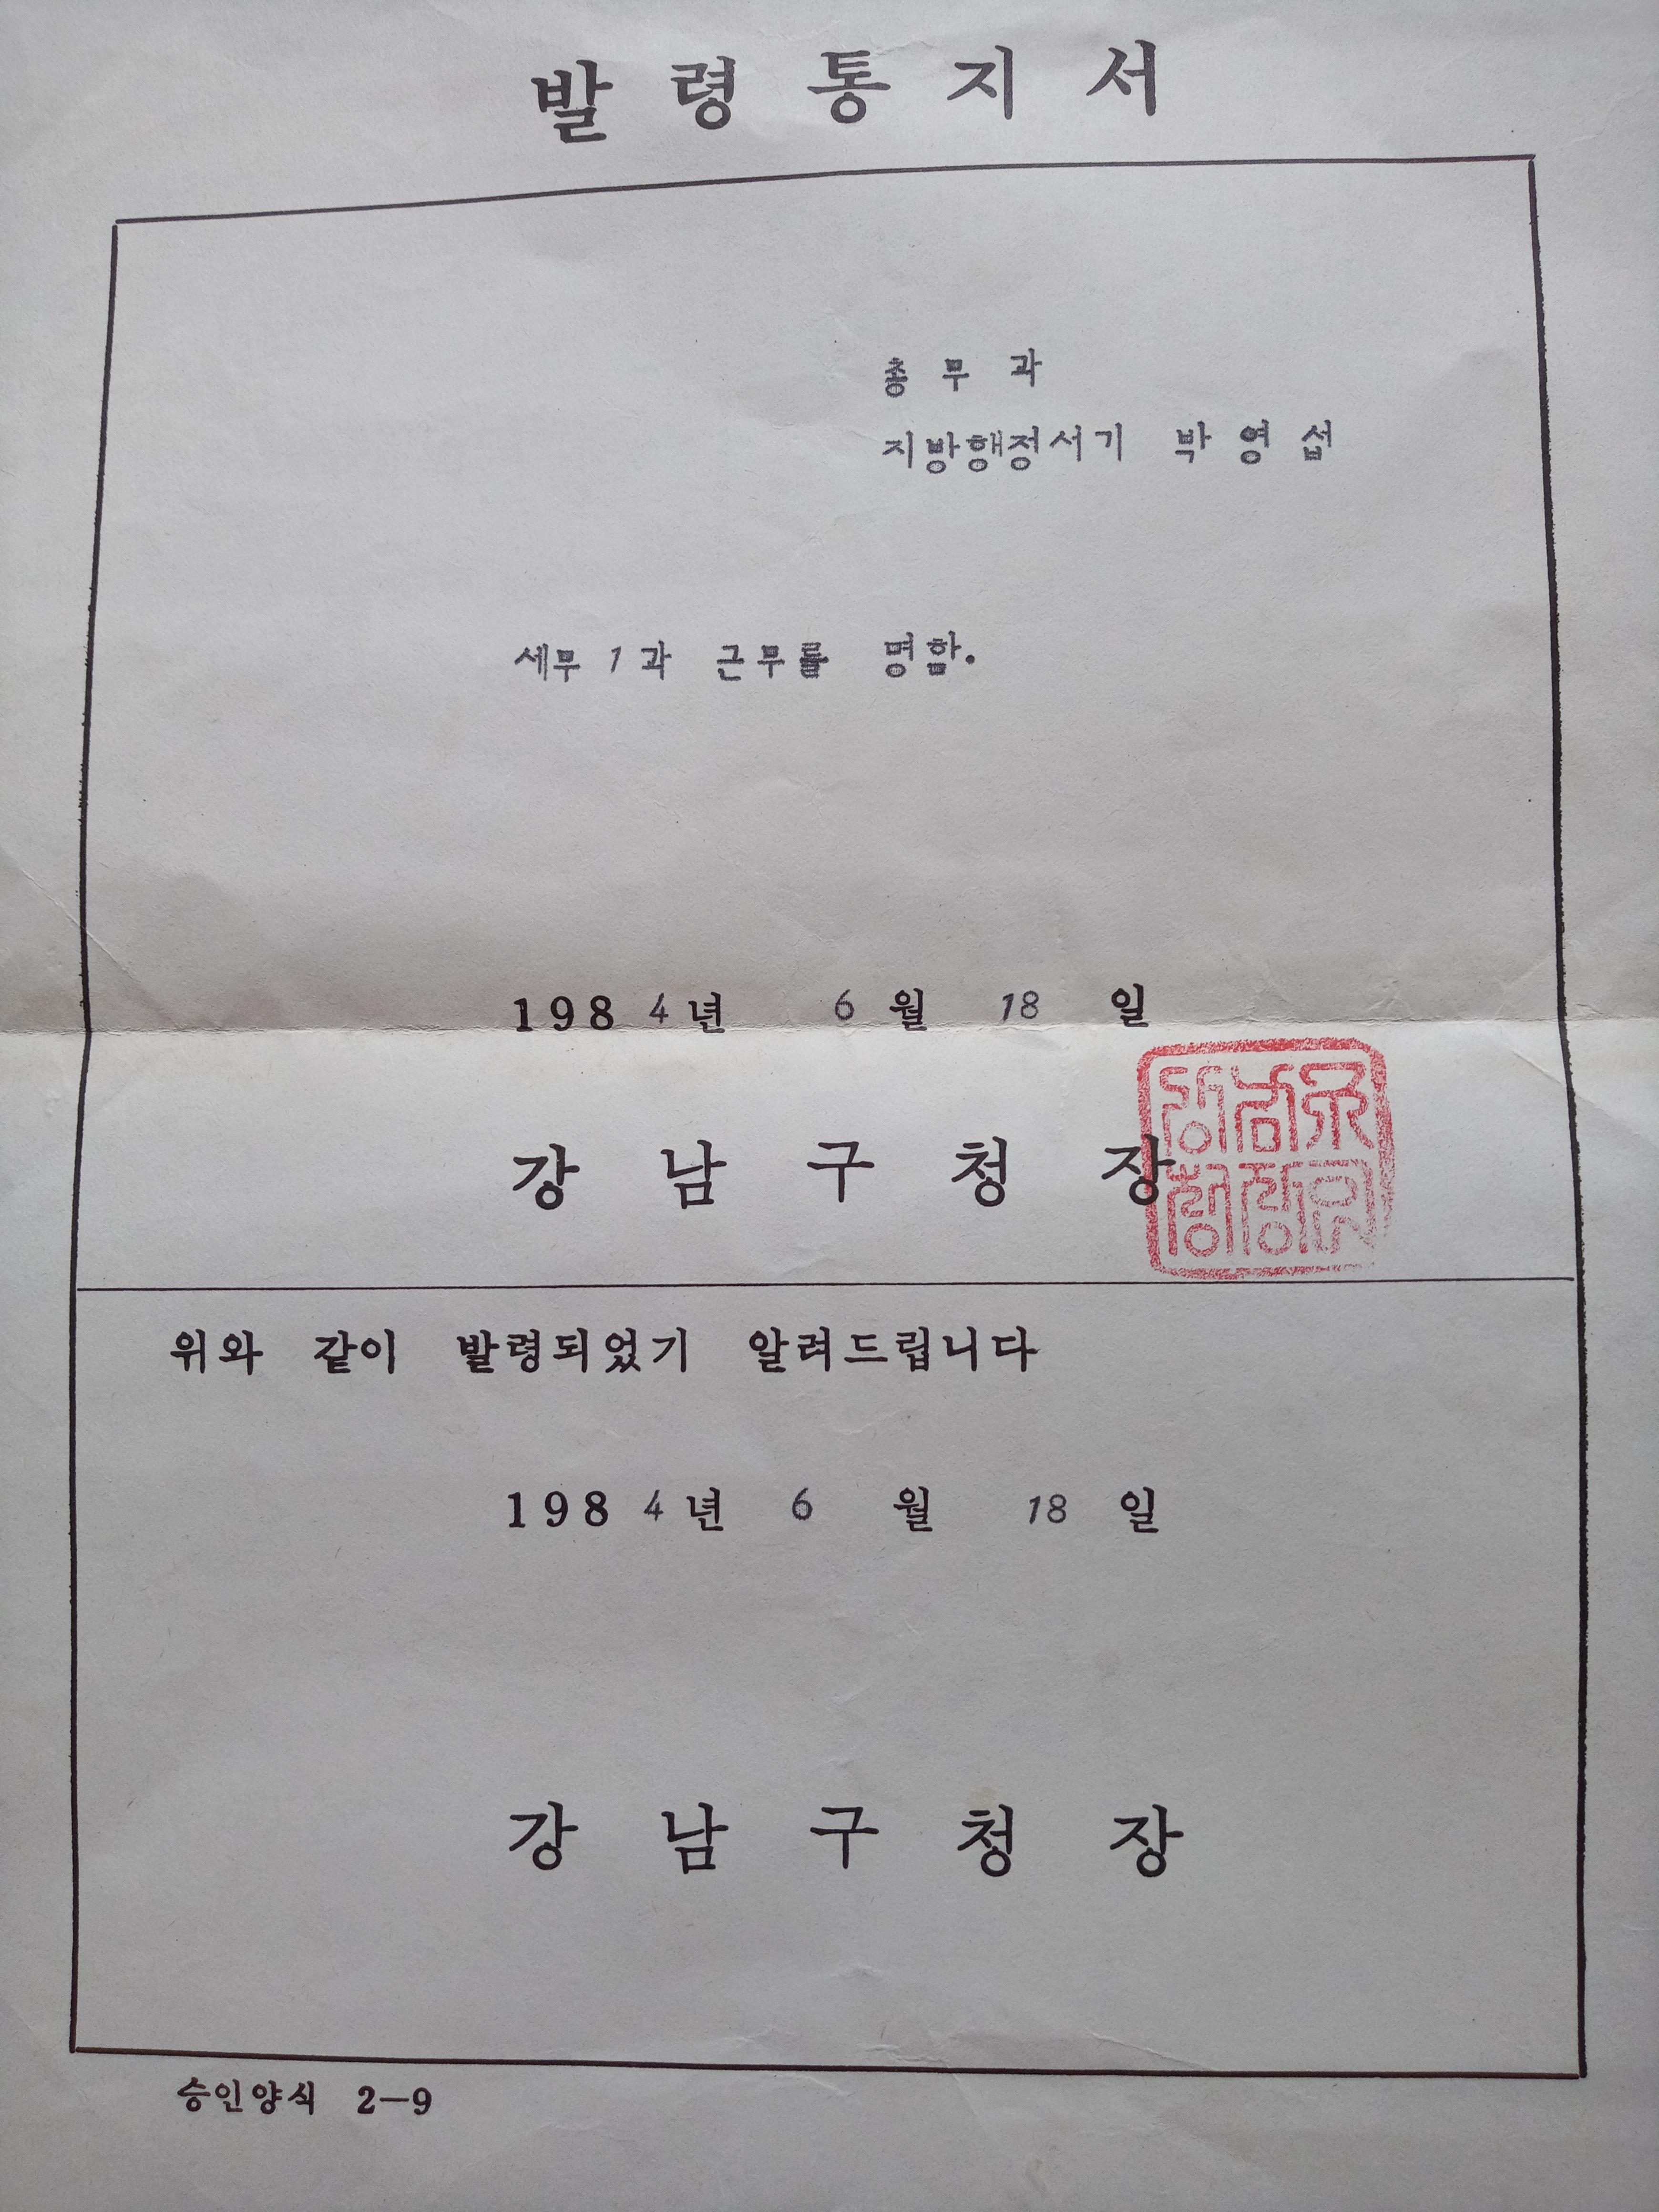 발령통지서
총무과
지방행정서기 박영섭
세무1과 근무를 명함.
1984년 6월 18일
강남구청장
위와 같이 발령되었기 알려드립니다
1984년 6월 18일
강남구청장
승인양식 2-9